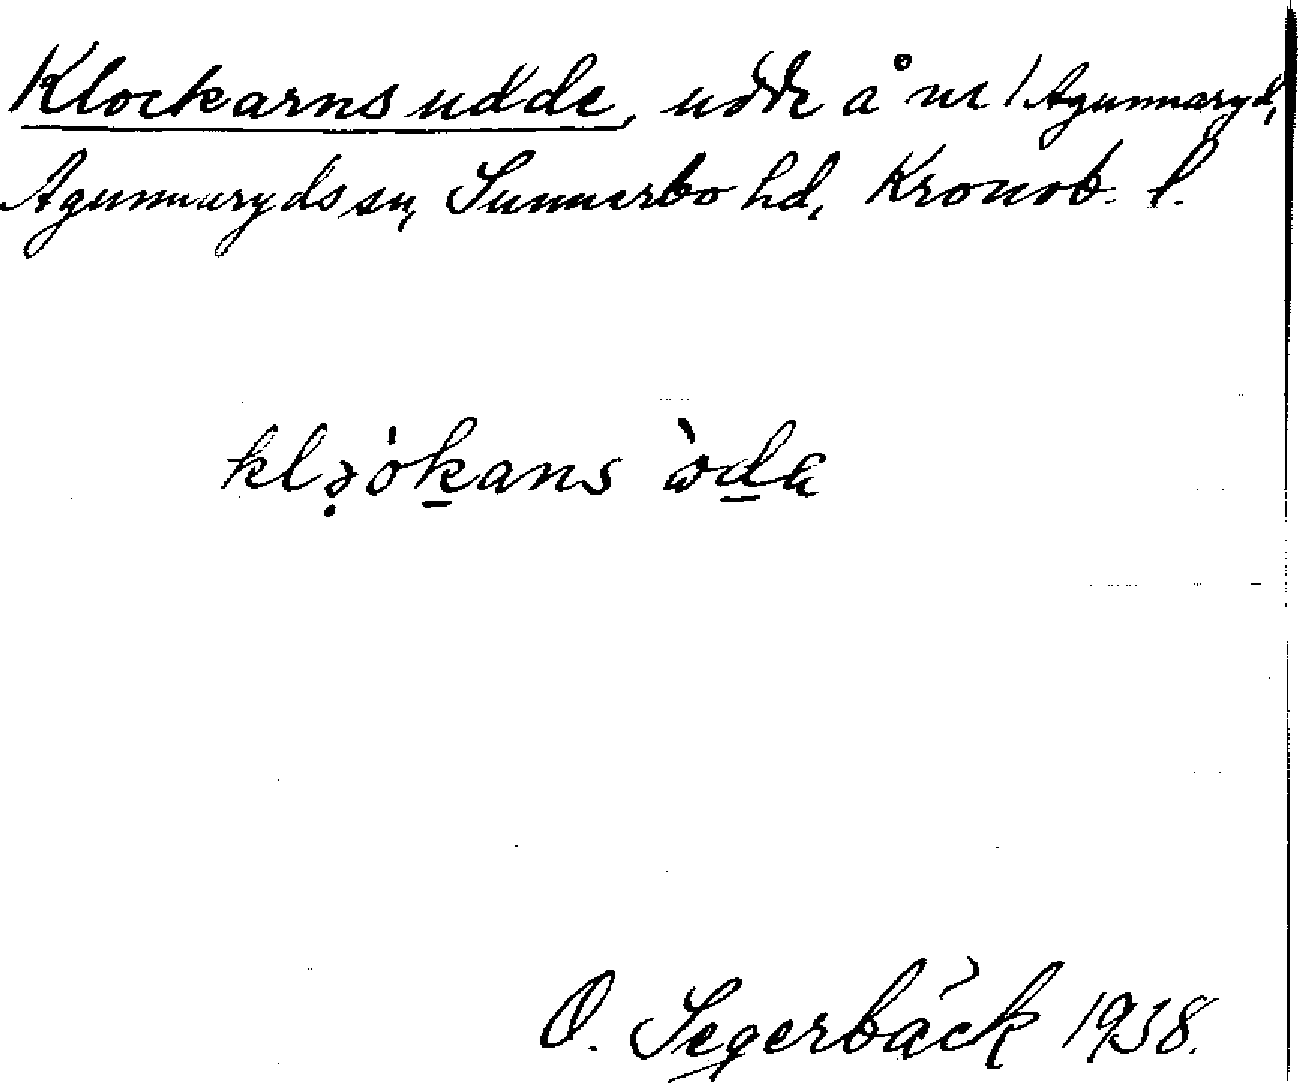 Klockarns udde, udde å nr 1 Agunnaryd,
Agunnaryds sn, Sunnerbo hd, Kronob. l.
klə̣òk̠ans òd̠a
O. Segerbäck 1938.